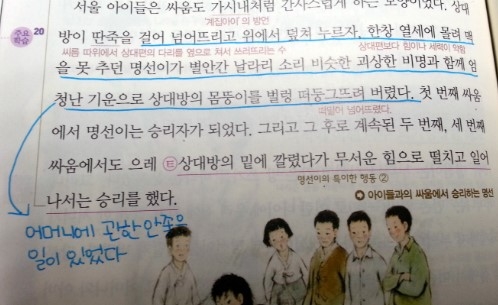 서울 아이들은 싸움도 가시내처럼 간사스럽게 하는 모양이었다. 상대
'계집아이'의 방언
주요 학습
20
방이 딴죽을 걸어 넘어뜨리고 위에서 덮쳐 누르자, 한창 열세에 몰려 맥
씨름 따위에서 상대편의 다리를 옆으로 쳐서 쓰러뜨리는 수
상대편보다 힘이나 세력이 약함
을 못 추던 명선이가 별안간 날라리 소리 비슷한 괴상한 비명과 함께 엄
청난 기운으로 상대방의 몸뚱이를 벌렁 떠둥그뜨려 버렸다. 첫 번째 싸움
떠밀어 넘어뜨려
에서 명선이는 승리자가 되었다. 그리고 그 후로 계속된 두 번째, 세 번째
싸움에서도 으레 상대방의 밑에 깔렸다가 무서운 힘으로 떨치고 일어
명선이의 특이한 행동 ②
나서는 승리를 했다.
아이들과의 싸움에서 승리하는 명선
어머니에 관한 안좋은
일이 있었다